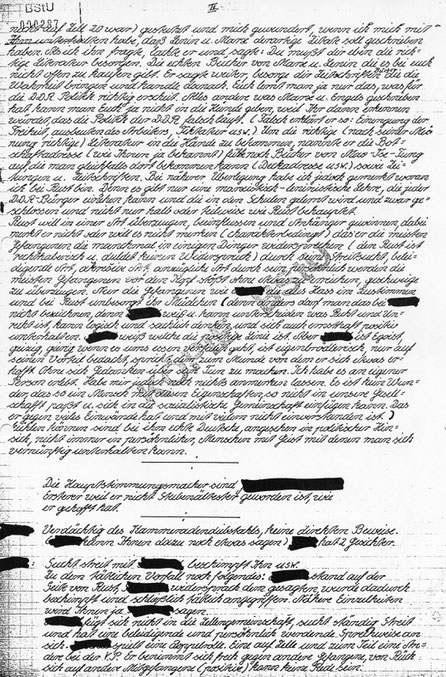 BStU
000287
II
nach auf Zell 20 war) gestutzt und mich gewundert, wenn ich mich mit
unterhalten habe, daß Lenin u. Marx derartige Zitate soll geschrieben
haben. Als ich ihn fragte, lachte er und sagte: Du mußt dir eben die rich-
tige Literatur besorgen. Die echten Bücher von Marx u. Lenin die es bei euch
nicht offen zu kaufen gibt. Er sagte weiter, besorge dir Zeitschriften die die
Wahrheit bringen und handle danach. Euch lernt man ja nur das, was für
die DDR Politik richtig erscheint. Alles andere was Marx u. Engels geschrieben
hat, kann man euch ja nicht in die Hand geben, weil Ihr dann erkennen
würdet, das die Politik der DDR falsch läuft. (Falsch erklärt er so: Einengung der
Freiheit, ausbeuten des Arbeiters, Diktatur usw.) Um die richtige (nach seiner Mei-
nung richtige) Literatur in die Hände zu bekommen, nannte er die Bot-
schaftadresse (wie Ihnen ja bekannt) bitte noch Bücher von Mao Tse-Tung
auf, die man ebenfalls dort bekommen kann (Deckadresse usw.) sowie Zei-
tungen u. Zeitschriften. Bei näherer Überlegung habe ich jedoch gemerkt woran
ich bei Rust bin. Denn es gibt nur eine marxistisch-leninistische Lehre, die jeder
DDR-Bürger einsehen kann und die in den Schulen gelernt wird und zwar ge-
schlossen und nicht nur halb oder teilweise wie Rust behauptet.
Rust will in einer Art überzeugen, beeinflussen und Anhänger gewinnen, dabei
merkt er nicht oder will es nicht merken (charakterbedingt) das er die meisten
Gefangenen die manchmal in einigen Dingen widersprechen (den Rust ist
rechthaberisch u. duldet keinen Widerspruch) durch seine Streitsucht, belei-
digende Art, Art, anzügliche Art durch sein persönlich werden die
meisten Gefangenen vor den Kopf stößt ohne etwas zu erreichen, geschweige
zu überzeugen. Aber die Gefangenen wie im Haus im Zustimmen
und bei Rust unbesorgt Ihr Mädchen (denn anders darf man das bei
nicht bezeichnen, denn weiß u. kann unterscheiden was Recht und Un-
recht ist, kann logisch und sachlich denken und sich auch ernsthaft positiv
unterhalten. weiß welche die richtige Linie ist. Aber ist Egoist
geizig, gierig wenn es ums essen u. geht, ist eigentroddlerisch, nur auf
seinen Vorteil bedacht, spricht dem zum Munde von dem er sich etwas er-
hofft. Ohne sich Gedanken über sein Tun zu machen. Ich habe es an eigener
Person erlebt. Habe mir jedoch noch nichts anmerken lassen. Es ist kein Wun-
der, das so ein Mensch mit diesen Eigenschaften, so nicht in unsere Gesell-
schaft paßt u. sich in die sozialistische Gemeinschaft einfügen kann. Das
er gegen viele Einwände hat und mit vielen nicht einverstanden ist.)
können sind bei ihm echte Deutsche, angesehen in politischer Hin-
sich, nicht immer in persönlicher, Menschen mit Geist mit denen man sich
vernünftig unterhalten kann.
Die Hauptstimmungsmacher sind
Ersterer weil er nicht Stubenältester geworden ist, wie
er gehofft hat.
Verdächtig des Kammeradendiebstahls, keine direkten Beweise.
( kann Ihnen dazu noch etwas sagen) hat 2 Gesichter.
: Sucht Streit mit , beschimpft Ihn usw.
Zu dem tätlichen Vorfall noch folgendes: stand auf der
Seite von Rust, widersprach dem gesagten, wurde dadurch
bedämpft und schließlich tätlich angegriffen. Nähere Einzelheiten
wird Ihnen ja sagen.
fügt sich nicht in die Zellengemeinschaft, sucht ständig Streit
und hat eine beleidigende und persönlich werdende Sprechweise an
sich. spielt eine Doppelrolle. Eine auf Zelle und zum Teil eine An-
dere bei der K.P. Er benimmt sich frech gegen andere Gefangene, von Rück-
sich auf andere Mitgefangene (positive) kann keine Rede sein.